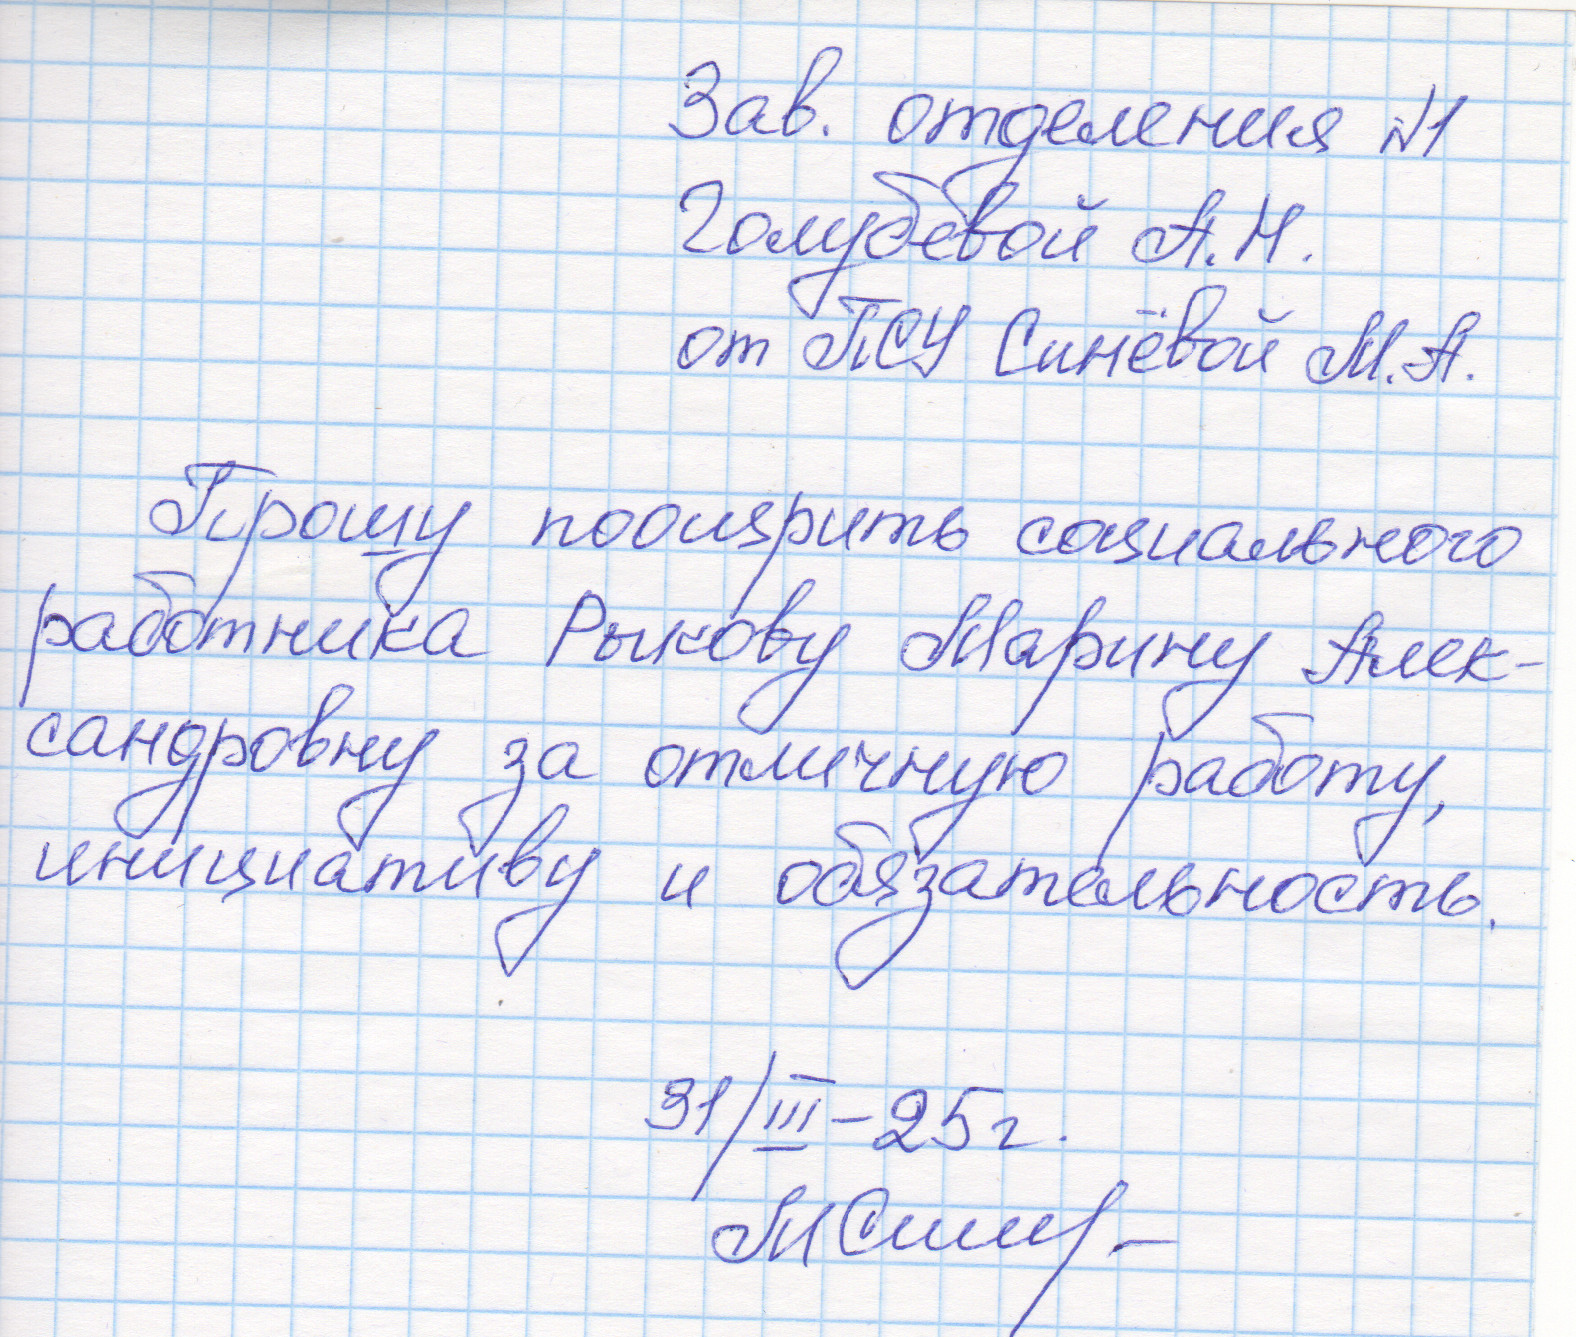 Зав. отделения №1
Голубевой А.Н.
от ПСУ Синёвой М.А.
Прошу поощрить социального
работника Рыкову Марину Алек-
сандровну за отличную работу,
инициативу и обязательность.
31/III-25г.